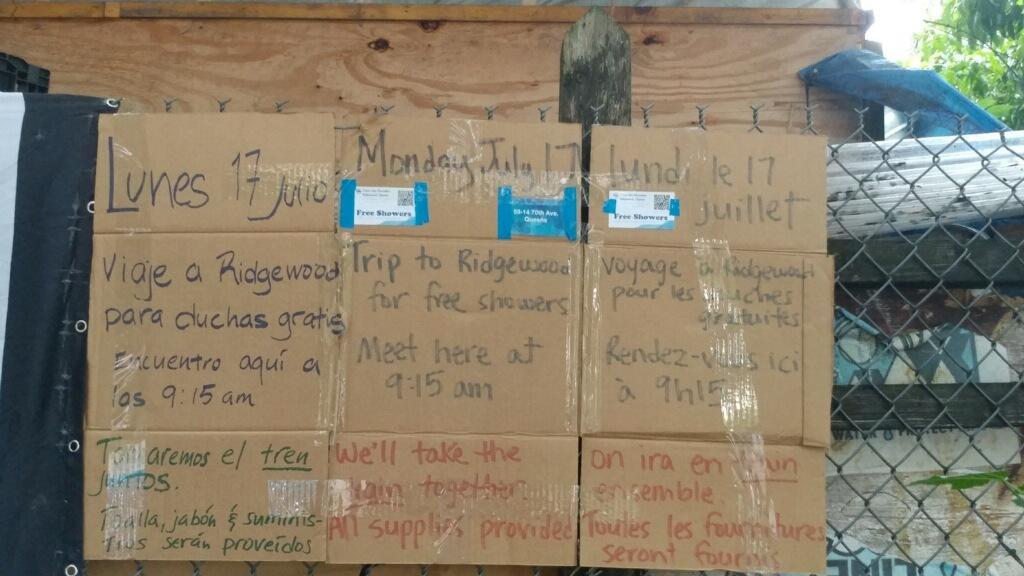 Lunes 17 julio
Viaje a Ridgewood
para duchas gratis
Encuentro aquí a
las 9:15 am
Tomaremos el tren
juntos.
Toalla, jabón & suminis-
tros serán proveídos
Monday July 17
Free Showers
59-14 70th Ave.
Queens
Trip to Ridgewood
for free showers
Meet here at
9:15 am
We'll take the
train together.
All supplies provided
Lundi le 17
juillet
Free Showers
Voyage à Ridgewood
pour les douches
gratuites
Rendez-vous ici
à 9h15
on ira en train
ensemble.
Toutes les fournitures
seront fournis